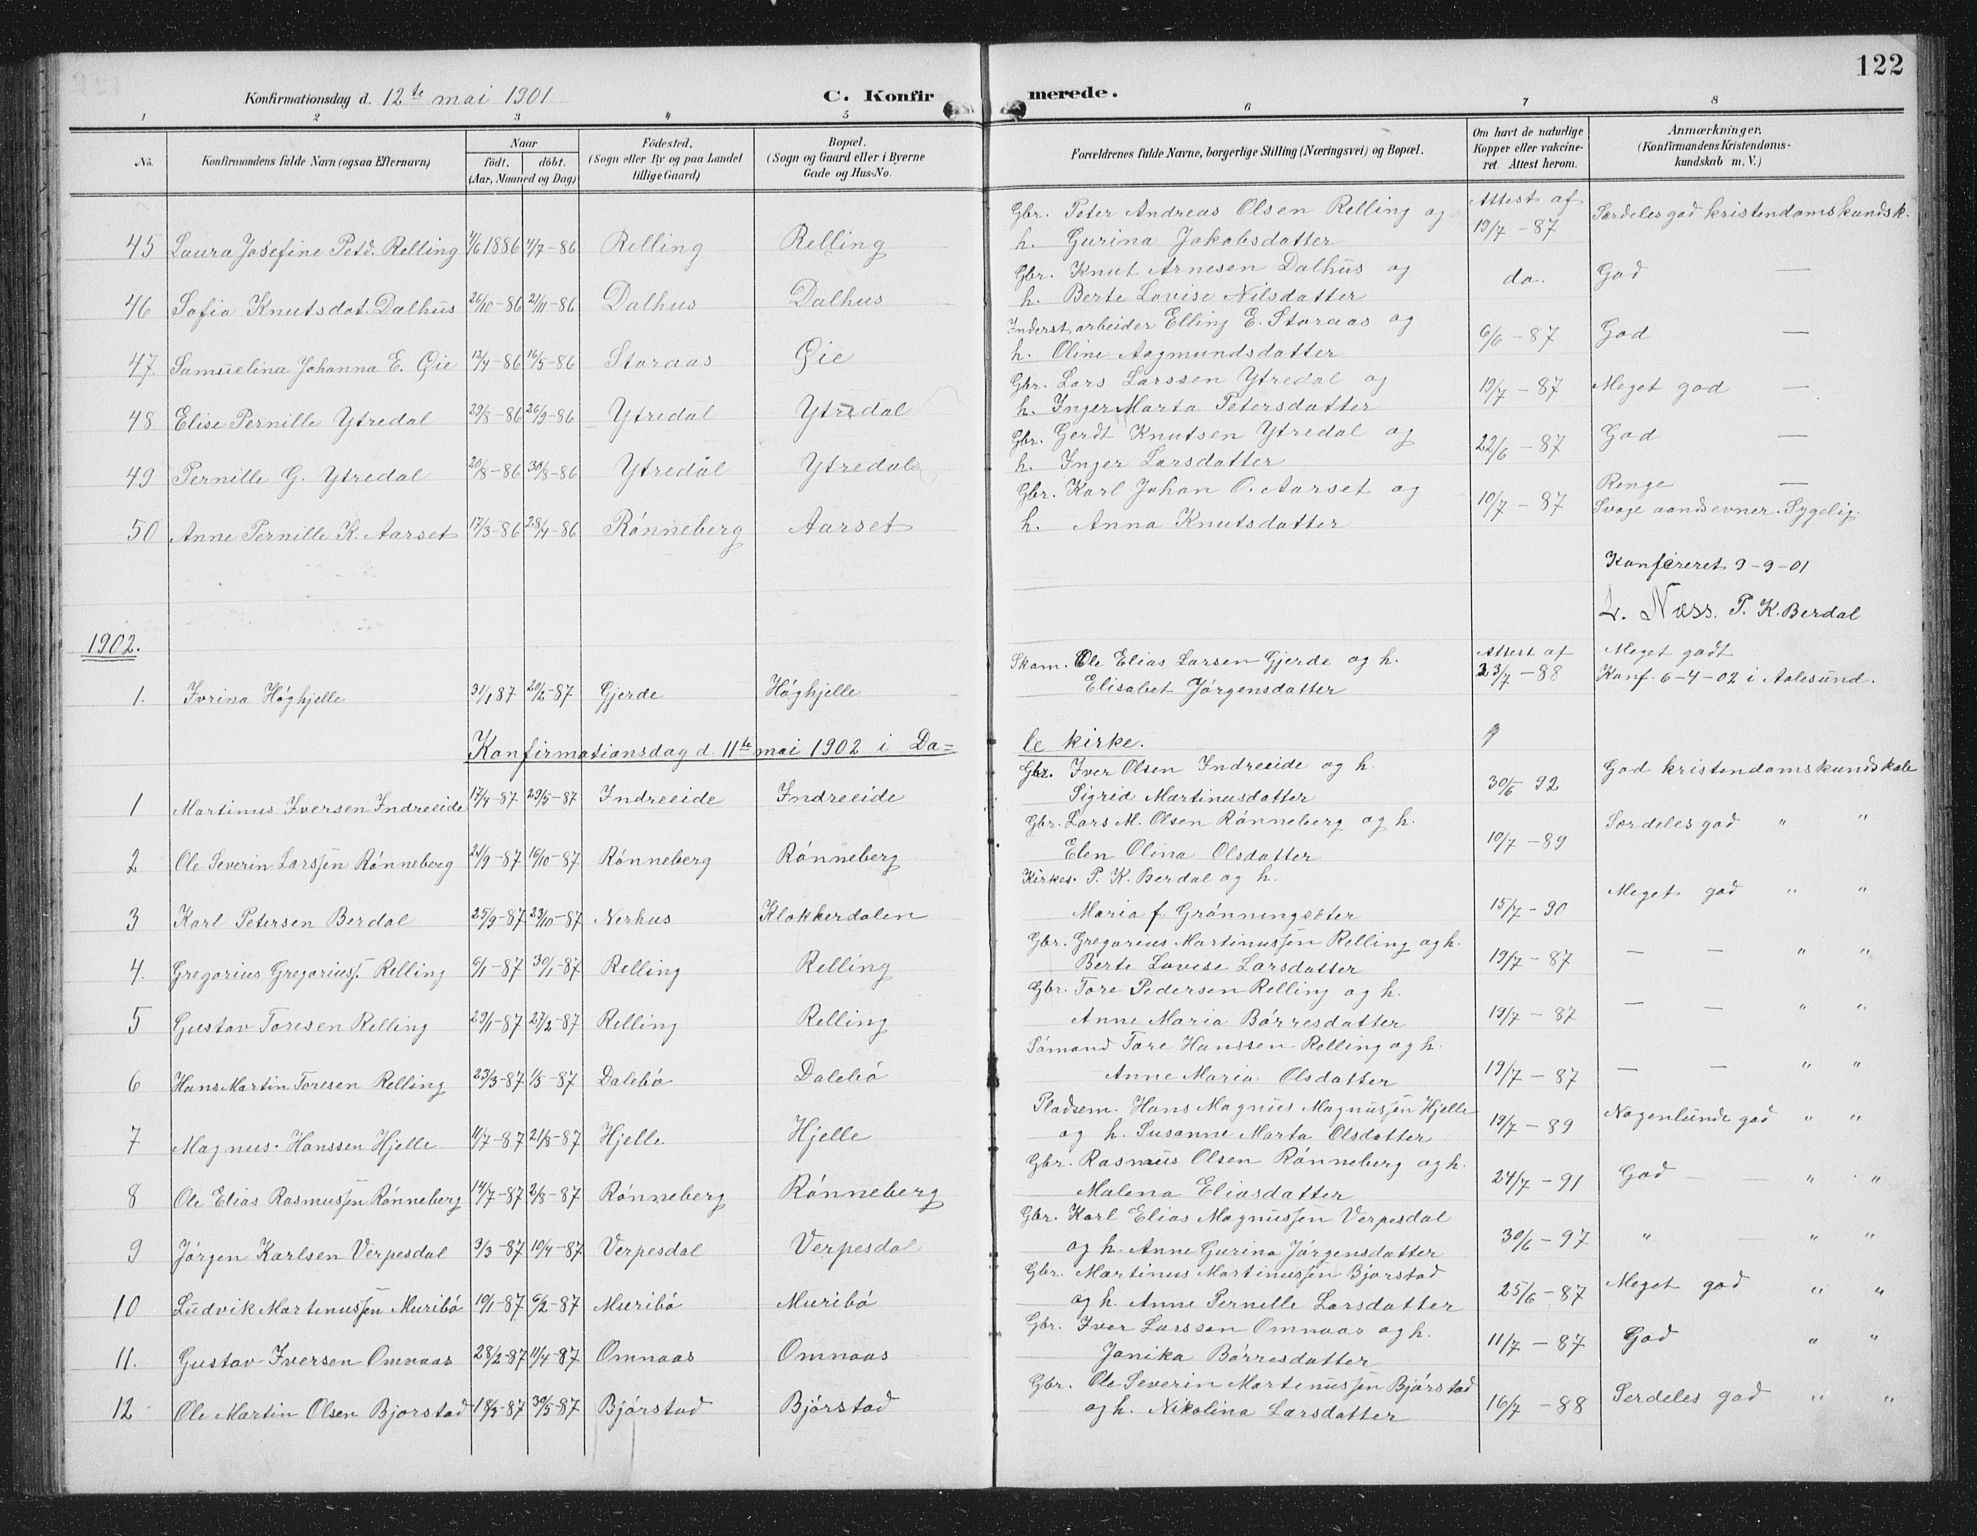 122
Konfirmationsdag d. 12te mai 1901
C. Konfirmerede.
1 2 3 4 5 6 7 8
No.
Konfirmandens fulde Navn (ogsaa Efternavn)
Naar
födt. döbt.
(Aar, Maaned og Dag)
Födested.
(Sogn eller By og paa Landet
tillige Gaard)
Bopæl.
(Sogn og Gaard eller i Byerne
Gade og Hus-No.
Forældrenes fulde Navne, borgerlige Stilling (Næringsvei) og Bopæl.
Om havt de naturlige
Kopper eller vakcine-
ret. Attest herom.
Anmærkninger.
(Konfirmandens Kristendoms-
kundskab m. V.)
Gbr. Peter Andreas Olsen Relling og Attest af Særdeles god kristendomskundsk.
45 Laura Josefine Petd. Relling 4/6 1886 4/7-86 Relling Relling h. Gurina Jakobsdatter 19/7-87
Gbr. Knut Arnesen Dalhus og do. God —
46 Sofia Knutsdat. Dalhus 26/10-86 21/11-86 Dalhus Dalhus h. Berte Lovise Nilsdatter
Inderst, arbeider Elling E. Storaas og 6/6-87 God —
47. Samuelina Johanna E. Øie 12/4-86 16/5-86 Storaas Øie h. Oline Aagmundsdatter
Gbr. Lars Larssen Ytredal og 19/7-87 Meget god —
48 Elise Pernille Ytredal 29/8-86 26/9-86 Ytredal Ytredal h. Inger Marta Petersdatter
Gbr. Gerdt Knutsen Ytredal og 22/6-87 God —
49 Pernille G. Ytredal 20/8-86 30/8-86 Ytredal Ytredal h. Inger Larsdatter
Gbr. Karl Johan O. Aarset og 10/7-87 Ringe —
50 Anne Pernille K. Aarset 17/3-86 28/4-86 Rønneberg Aarset h. Anna Knutsdatter Svage aandsevner. Sygelig.
Konfereret 9-9-01
L. Næss. P. K. Berdal
1902.
Skom. Ole Elias Larsen Gjerde og h. Attest af Meget godt
1. Ivrina Høghjelle 31/1 87 20/2-87 Gjerde Høghjelle Elisabet Jørgensdatter 23/7-88 Konf. 6-4-02 i Aalesund.
Konfirmationsdag d. 11te mai 1902 i Dale kirke.
Gbr. Iver Olsen Indreeide og h. 30/6 92 God kristendomskundskab
1 Martinus Iversen Indreeide 17/4-87 29/5-87 Indreeide Indreeide Sigrid Martinusdatter
Gbr. Lars M. Olsen Rønneberg og h. 10/7-89 Særdeles god " "
2 Ole Severin Larssen Rønneberg 21/9-87 16/10-87 Rønneberg Rønneberg Elen Olina Olsdatter
Kirkes. P. K. Berdal og h. Meget god " "
3 Karl Petersen Berdal 25/9-87 23/10-87 Nerhus Klokkerdalen Maria f. Grønningsæter 15/7-90
Gbr. Gregorius Martinussen Relling og h. 19/7-87 — — " "
4. Gregorius Gregoriuss. Relling 6/1-87 30/1-87 Relling Relling Berte Lovise Larsdatter
Gbr. Tore Pedersen Relling og h. 19/7-87 — — " "
5 Gustav Toresen Relling 29/1-87 27/2-87 Relling Relling Anne Maria Børresdatter
Sømand Tore Hanssen Relling og h. 19/7-87 — — " "
6 Hans Martin Toresen Relling 23/3-87 1/5-87 Dalebø Dalebø Anne Maria Olsdatter
Pladsem. Hans Magnus Magnussen Hjelle 19/7-89 Nogenlunde god " "
7 Magnus Hanssen Hjelle 11/7-87 21/8-87 Hjelle Hjelle og h. Susanne Marta Olsdatter
Gbr. Rasmus Olsen Rønneberg og h. 24/7-91 God — — " "
8 Ole Elias Rasmussen Rønneberg 14/7-87 2/8-87 Rønneberg Rønneberg Malena Eliasdatter
Gbr. Karl Elias Magnussen Verpesdal 30/6-97 " — " "
9 Jørgen Karlsen Verpesdal 3/3-87 10/4-87 Verpesdal Verpesdal og h. Anne Gurina Jørgensdatter
Gbr. Martinus Martinussen Bjørstad 25/6-87 Meget god " "
10 Ludvik Martinussen Muribø 10/1-87 6/2-87 Muribø Muribø og h. Anne Pernille Larsdatter
Gbr. Iver Larssen Omnaas og h. 11/7-87 God " "
11. Gustav Iversen Omnaas 28/2-87 11/4-87 Omnaas Omnaas Janika Børresdatter
Gbr. Ole Severin Martinussen Bjørstad 16/7-88 Særdeles god " "
12 Ole Martin Olsen Bjørstad 18/3-87 30/5-87 Bjørstad Bjørstad og h. Nikolina Larsdatter